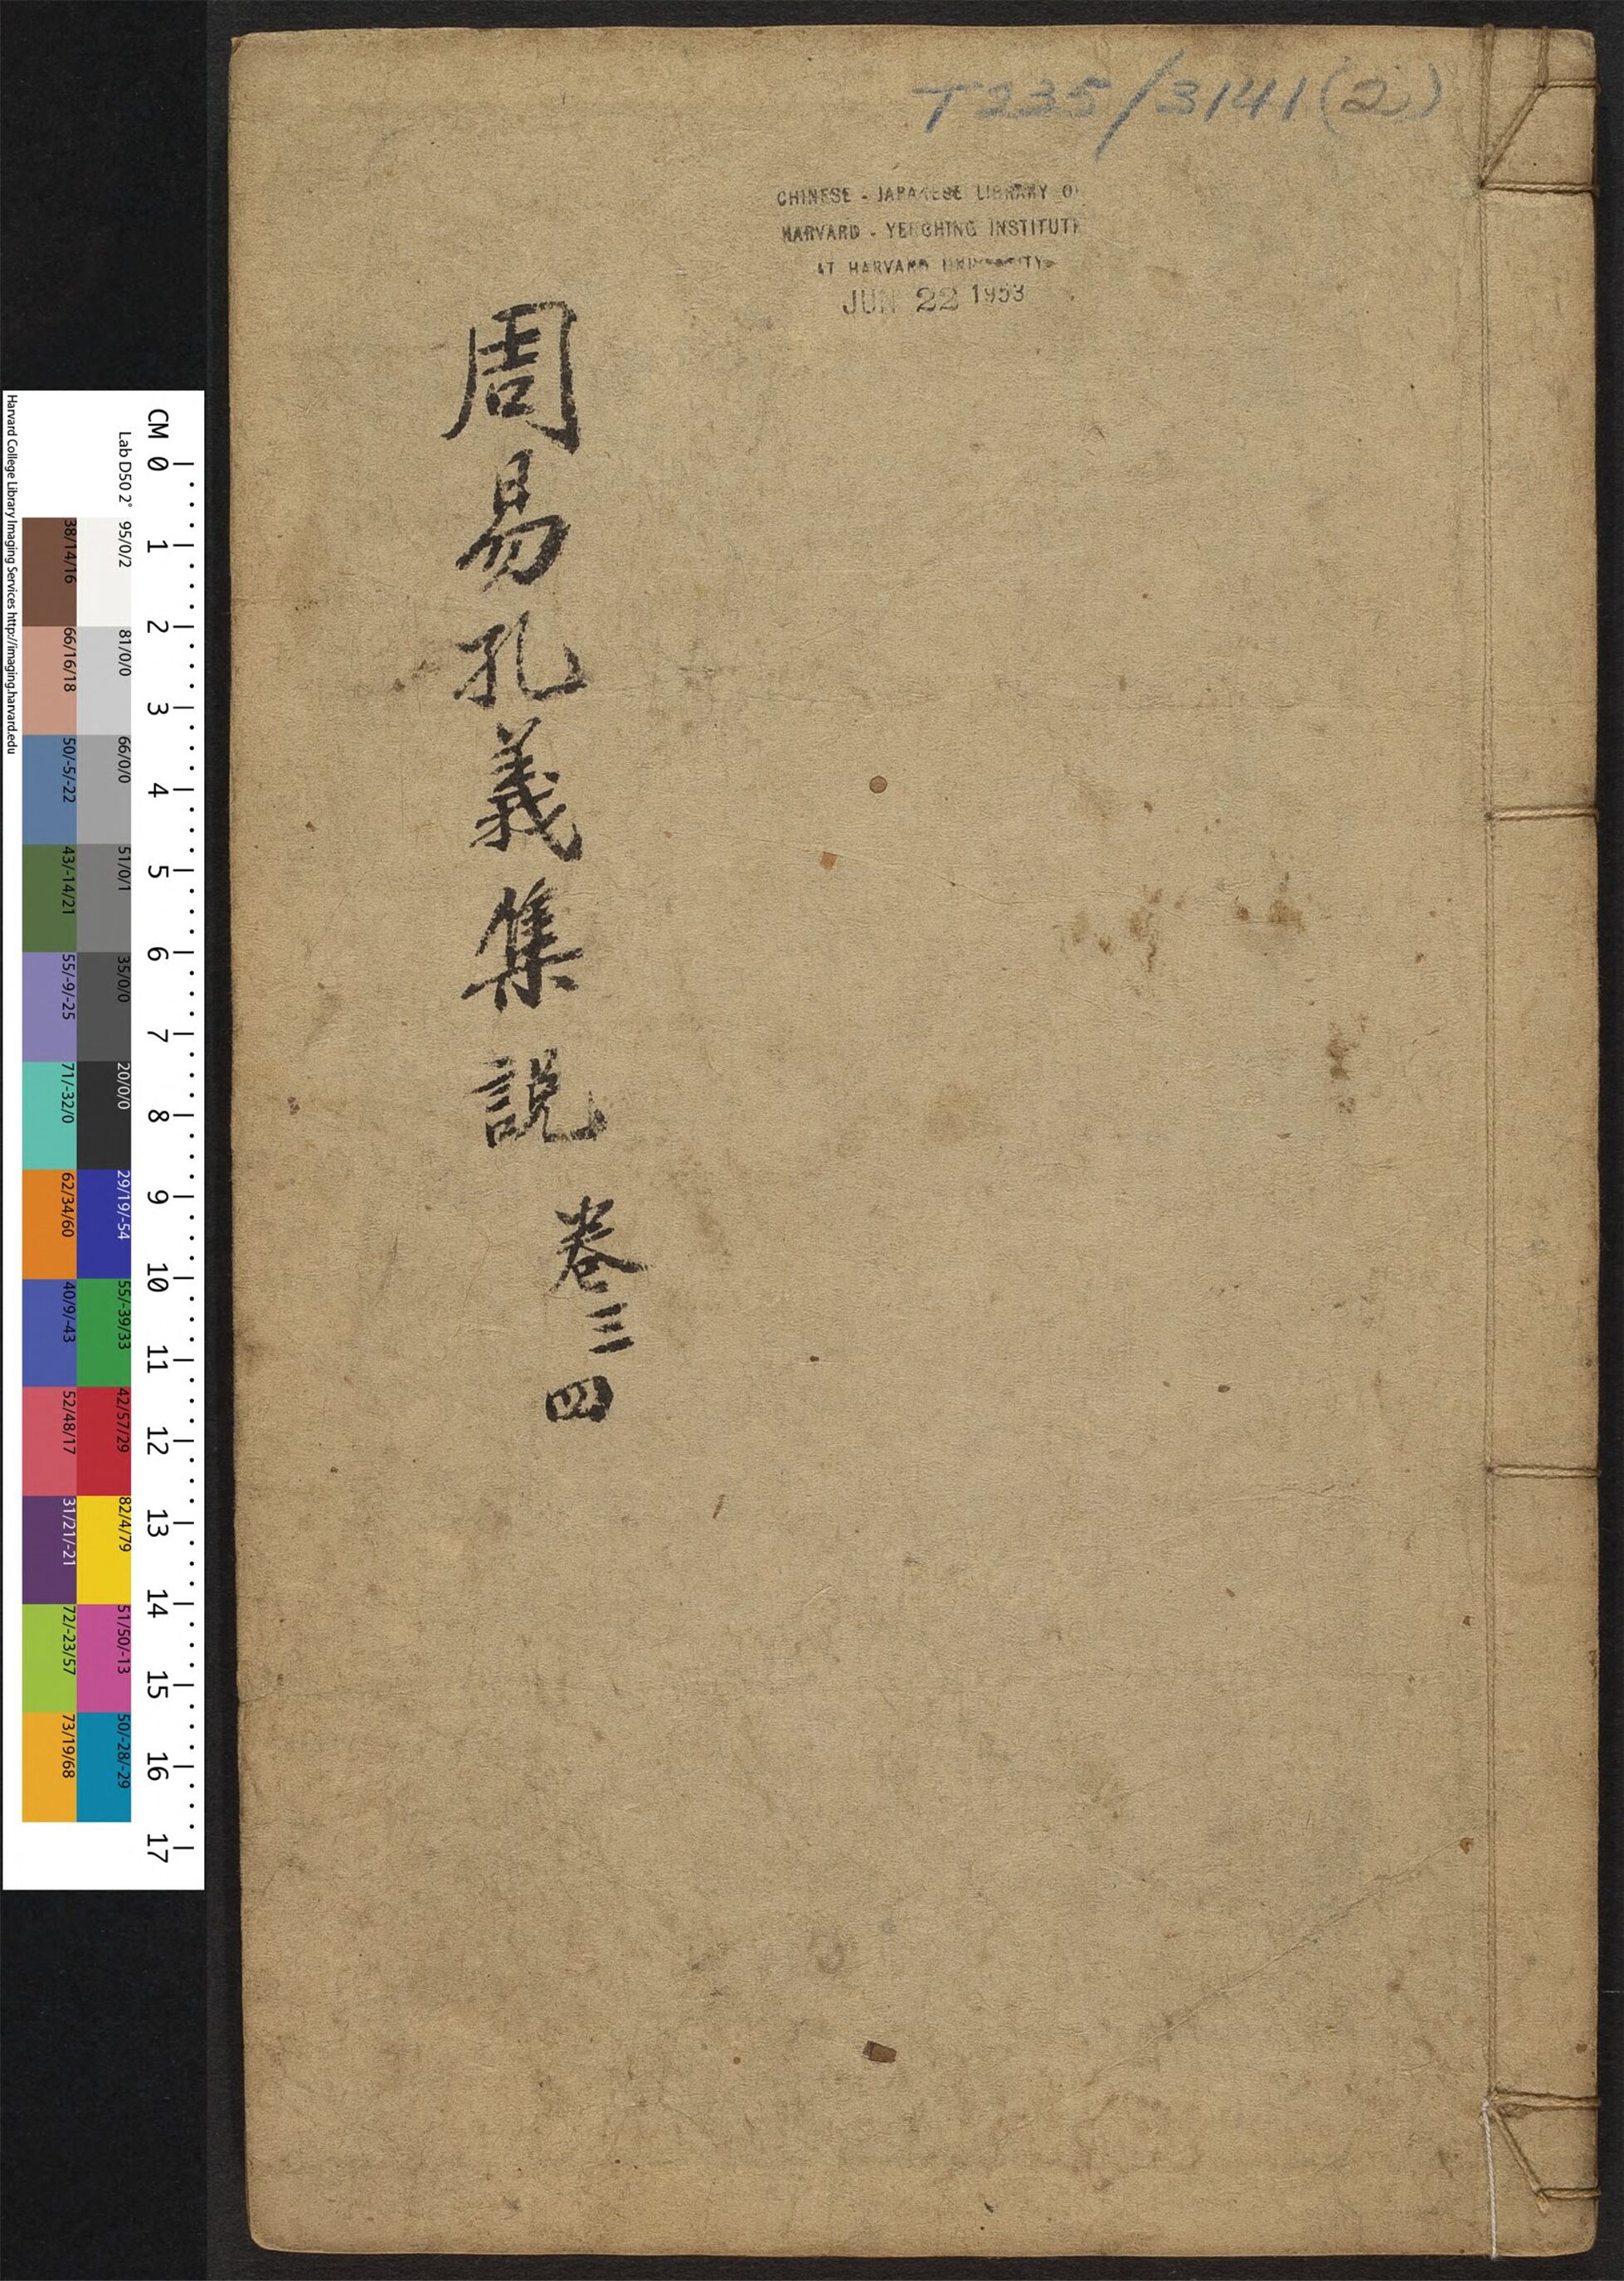 T235/3141(2)
CHINESE - JAPANESE LIBRARY OF
HARVARD - YENCHING INSTITUTE
AT HARVARD UNIVERSITY
JUN 22 1953
周易孔義集說
卷三四
CM 0 1 2 3 4 5 6 7 8 9 10 11 12 13 14 15 16 17
Lab D50 2° 95/0/2 81/0/0 66/0/0 51/0/1 35/0/0 20/0/0 29/19/-54 55/-39/33 42/57/29 82/4/79 51/50/-13 50/-28/-29
38/14/16 66/16/18 50/-5/-22 43/-14/21 55/-9/-25 71/-32/0 62/34/60 40/9/-43 52/48/17 31/21/-21 72/-23/57 73/19/68
Harvard College Library Imaging Services http://imaging.harvard.edu